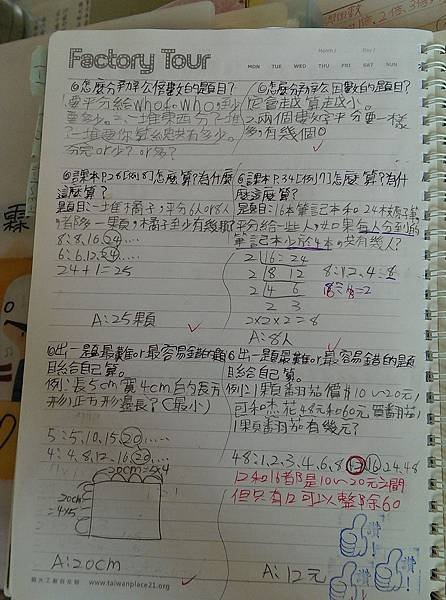 Factory Tour
Month / Day /
MON TUE WED THU FRI SAT SUN
怎麼分辨公倍數的題目?
要平分給who和who,至少
要多少。一堆東西分?堆
?一堆要你算總共有多少。
分完or少?or多?
怎麼分辨公因數的題目?
它會越算越小。
2.兩個數字平分要一樣
多,有幾個。
課本P.28[例8]怎麼算?為什麼
這麼算?
題目:一堆橘子,平分6人or8人
都多一果頁,橘子至少有幾顆?
8:8,16,24
6:6,12,24
24+1=25
A:25顆
課本P.34[例7]怎麼算?為什
麼這麼算?
題目:16本筆記本和24枝
平分給一些人,如果每人分到的
筆記本少於4本,共有幾人?
2 16 24
2 8 12
2 4 6
2 3
8:1,2,4,8
2×2×2=8
A:8人
出一題最難or最容易錯的題
目給自己算。
例:長5cm寬4cm的長方
形正方形邊長?(最小)
5:5,10,15,20……
4:4,8,12,16,20……
20cm=5×4
20cm
=4×5
A:20cm
出一題最難or最容易錯的題
目給自己算。
例:1顆番茄價#10~20元,
可和杰花48元和60元買番茄,
1顆番茄有幾元?
48:1,2,3,4,6,8,12,16,24,48
12和16都是10~20元之間
但只有12可以整除60
A:12元
www.taiwanplace21.org